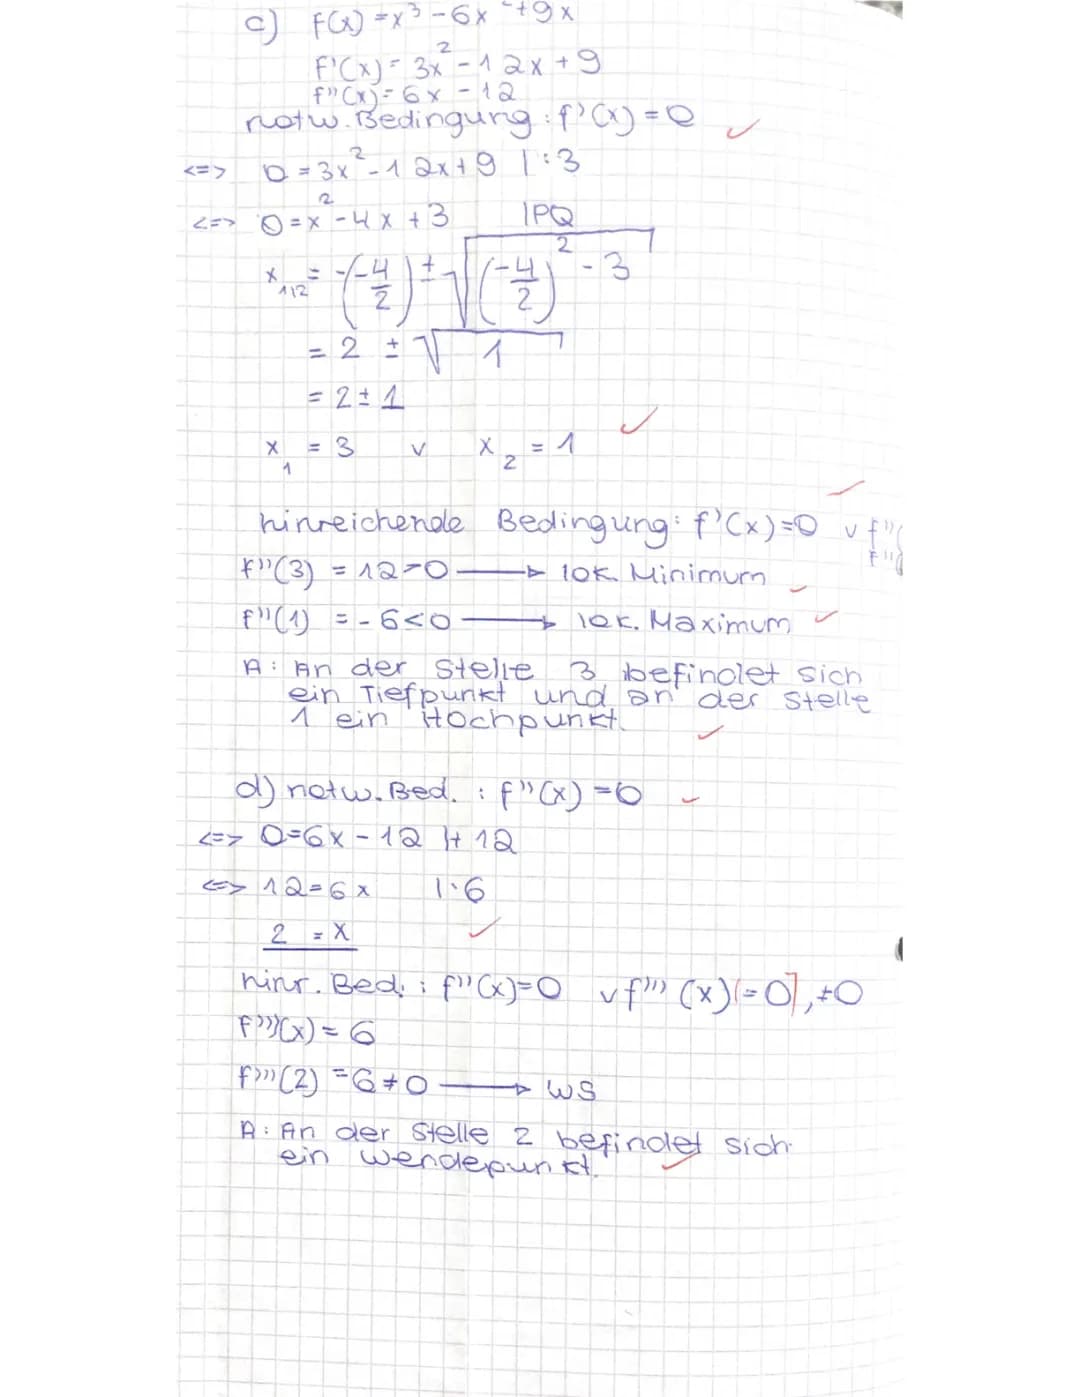 c) f(x) = x³ - 6x² + 9x
f'(x) = 3x² - 12x + 9
f''(x) = 6x - 12
notw. Bedingung: f'(x) = 0
<=> 0 = 3x² - 12x + 9 |:3
<=> 0 = x² - 4x + 3 |PQ
x₁,₂ = -(-4/2) ± √((-4/2)² - 3)
= 2 ± √1
= 2 ± 1
x₁ = 3 v x₂ = 1
hinreichende Bedingung: f'(x) = 0 v f''(
f''(
f''(3) = 12 > 0 → lok. Minimum
f''(1) = -6 < 0 → lok. Maximum
A: An der Stelle 3 befindet sich
ein Tiefpunkt und an der Stelle
1 ein Hochpunkt.
d) notw. Bed. : f''(x) = 0
<=> 0 = 6x - 12 |+ 12
<=> 12 = 6x |:6
2 = x
hinr. Bed. : f''(x) = 0 v f'''(x) [= 0], ≠ 0
f'''(x) = 6
f'''(2) = 6 ≠ 0 → WS
A: An der Stelle 2 befindet sich
ein Wendepunkt.